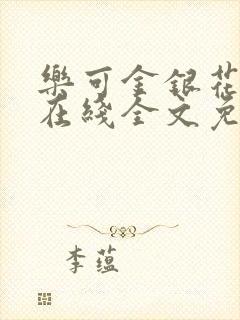 樂可金銀花
在綫全文免
李蕴